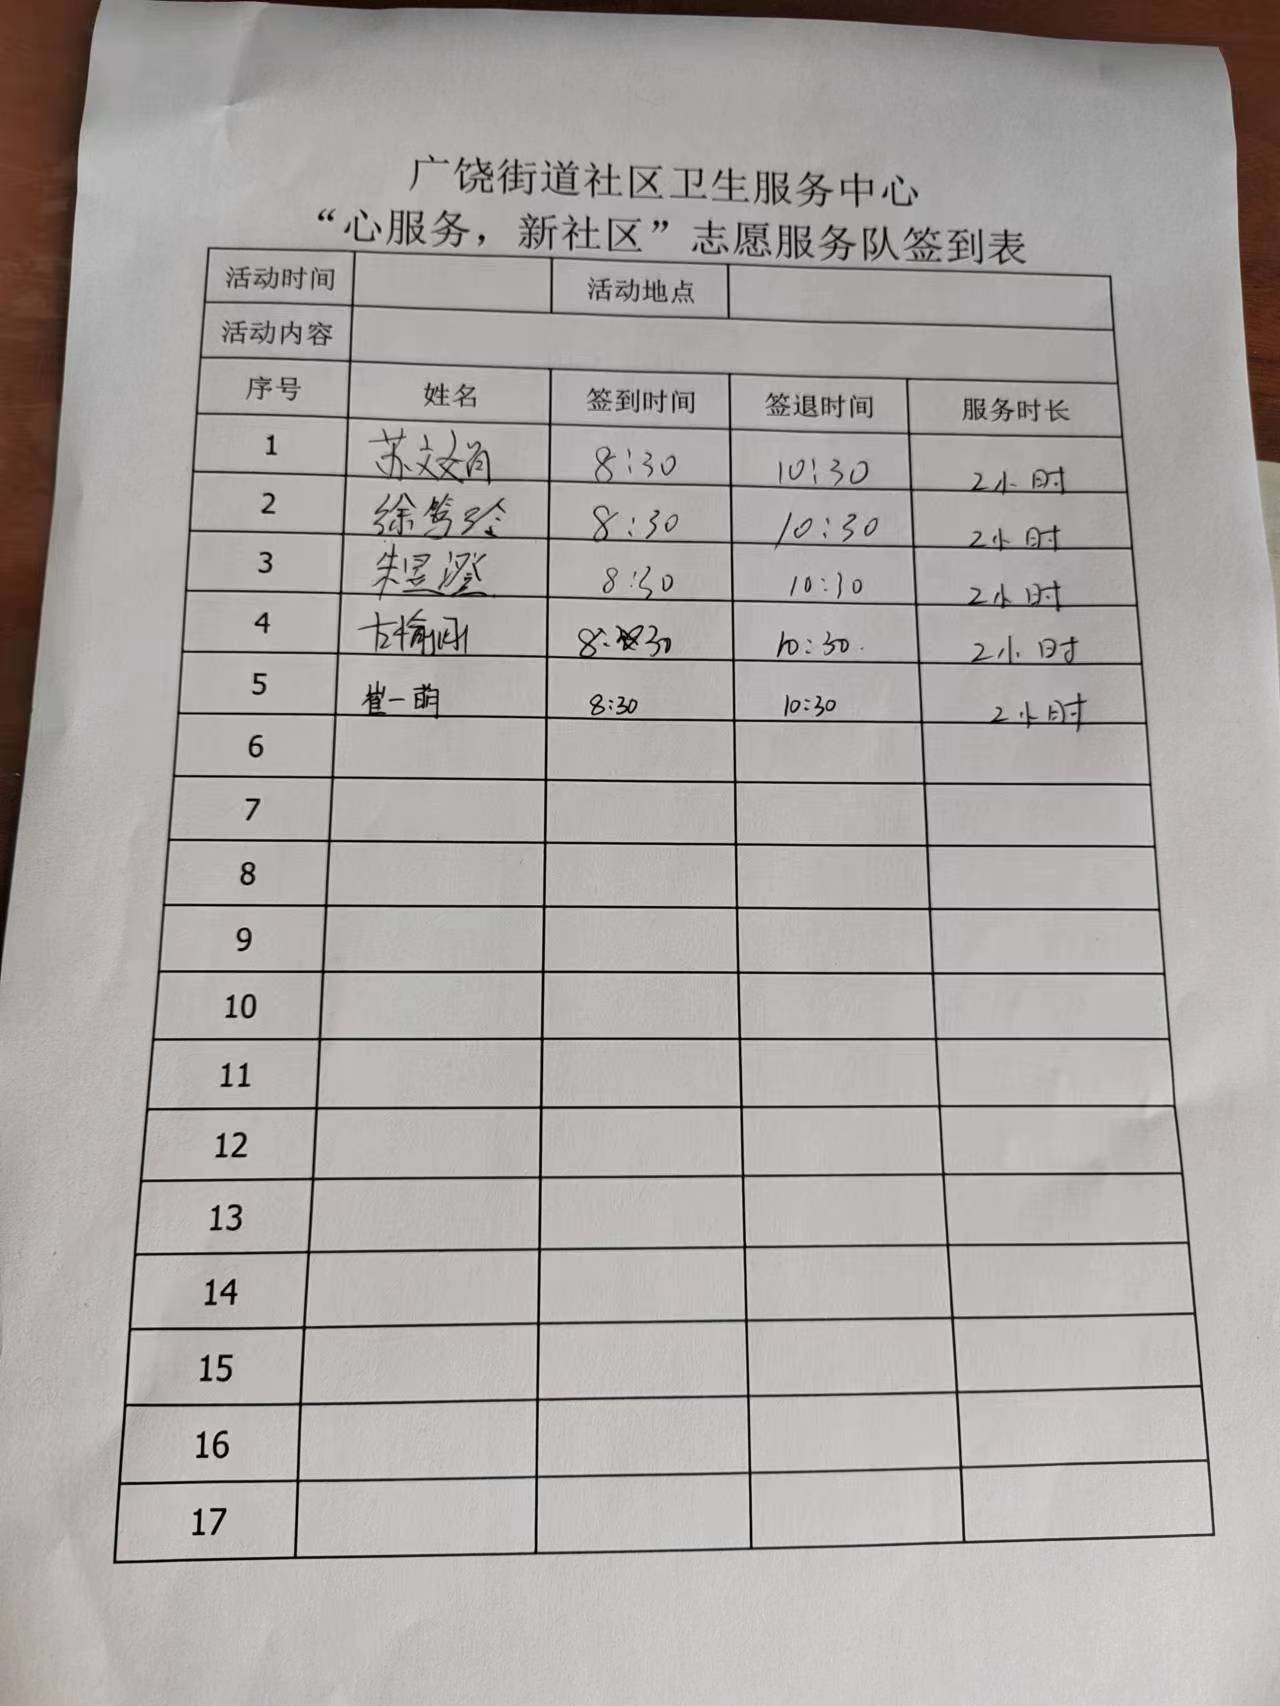 广饶街道社区卫生服务中心
“心服务，新社区”志愿服务队签到表
活动时间 活动地点
活动内容
序号 姓名 签到时间 签退时间 服务时长
1 苏 8:30 10:30 2小时
2 徐 8:30 10:30 2小时
3 朱昱澄 8:30 10:30 2小时
4 8:30 10:30 2小时
5 崔一萌 8:30 10:30 2小时
6
7
8
9
10
11
12
13
14
15
16
17